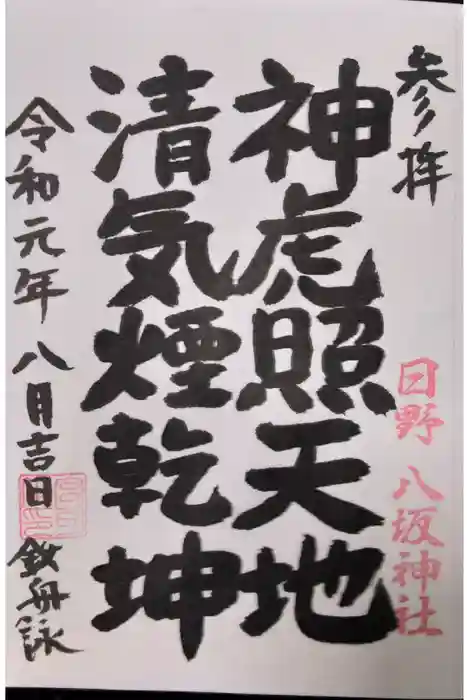 参拝
日野 八坂神社
神虎照天地
清気煙乾坤
令和元年 八月吉日 釛舟詠